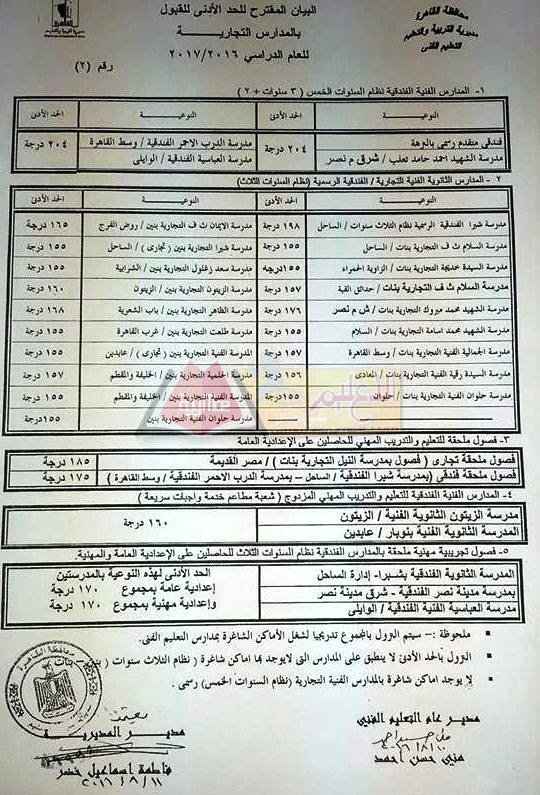 محافظة القاهرة
مديرية التربية والتعليم
التعليم الفنى
البيان المقترح للحد الأدنى للقبول
بالمدارس التجارية
للعام الدراسي ٢٠١٧/٢٠١٦
رقم (٢)
١- المدارس الفنية الفندقية نظام السنوات الخمس (٣ سنوات + ٢)
النوعية الحد الأدنى النوعية الحد الأدنى
فندقى متقدم رسمى بالنزهة ٢٠٤ درجة مدرسة الدرب الاحمر الفندقية / وسط القاهرة ٢٠٤ درجة
مدرسة الشهيد احمد حامد تعلب / شرق م نصر مدرسة العباسية الفندقية / الوايلى
٢- المدارس الثانوية الفنية التجارية / الفندقية الرسمية (نظام السنوات الثلاث)
النوعية الحد الأدنى النوعية الحد الأدنى
مدرسة شبرا الفندقية الرسمية نظام الثلاث سنوات / الساحل ١٩٨ درجة مدرسة الايمان ث ف التجارية بنين / روض الفرج ١٦٥ درجة
مدرسة السلام ث ف التجارية بنات / الساحل ١٥٥ درجة مدرسة شبرا التجارية بنين (تجارى) / الساحل ١٥٥ درجة
مدرسة السيدة خديجة التجارية بنات / الزاوية الحمراء ١٥٥ درجه مدرسة سعد زغلول التجارية بنين / الشرابية ١٥٥ درجة
مدرسة السلام ث ف التجارية بنات / حدائق القبة ١٥٧ درجة مدرسة الزيتون التجارية بنين / الزيتون ١٦٠ درجة
مدرسة الشهيد محمد مبروك التجارية بنات / ش م نصر ١٧٦ درجة مدرسة الظاهر التجارية بنين / باب الشعرية ١٦٨ درجة
مدرسة الشهيد محمد اسامة التجارية بنات / السلام ١٥٥ درجة مدرسة طلعت التجارية بنين / غرب القاهرة ١٥٥ درجة
مدرسة الجمالية الفنية التجارية بنات / وسط القاهرة ١٥٧ درجة المدرسة الفنية التجارية بنين (تجارى) / عابدين ١٥٥ درجة
مدرسة السيدة رقية الفنية التجارية بنات / المعادى ١٥٦ درجة مدرسة الحلمية التجارية بنين / الخليفة والمقطم ١٥٧ درجة
مدرسة حلوان الفنية التجارية بنات / حلوان ١٥٥ درجة المدرسة الفنية التجارية بنين / الخليفة والمقطم ١٥٥ درجة
مدرسة حلوان الفنية التجارية بنين ١٥٥ درجة
٣- فصول ملحقة للتعليم والتدريب المهني للحاصلين على الإعدادية العامة
فصول ملحقة تجارى (فصول بمدرسة النيل التجارية بنات) / مصر القديمة ١٨٥ درجة
فصول ملحقة فندقى (بمدرسة شبرا الفندقية / الساحل – بمدرسة الدرب الاحمر الفندقية / وسط القاهرة) ١٧٥ درجة
٤- المدارس الفنية الفندقية للتعليم والتدريب المهني المزدوج (شعبة مطاعم خدمة واجبات سريعة)
مدرسة الزيتون الثانوية الفنية / الزيتون ١٦٠ درجة
المدرسة الثانوية الفنية بنوبار / عابدين
٥- فصول تجريبية مهنية ملحقة بالمدارس الفندقية نظام السنوات الثلاث للحاصلين على الإعدادية العامة والمهنية.
المدرسة الثانوية الفندقية بشبرا- إدارة الساحل الحد الأدنى لهذه النوعية بالمدرستين
بمدرسة مدينة نصر الفندقية - شرق مدينة نصر إعدادية عامة بمجموع ١٧٠ درجة
مدرسة العباسية الفنية الفندقية / الوايلى وإعدادية مهنية بمجموع ١٧٠ درجة
ملحوظة :- سيتم النزول بالمجموع تدريجيا لشغل الأماكن الشاغرة بمدارس التعليم الفنى.
النزول بالحد الأدنى لا ينطبق على المدارس التى لا يوجد بها اماكن شاغرة (نظام الثلاث سنوات)
لا يوجد اماكن شاغرة بالمدارس الفنية التجارية (نظام السنوات الخمس) رسمى.
مدير عام التعليم الفنى
منى حسن أحمد
يعتمد
مدير المديرية
فاطمة إسماعيل خضر